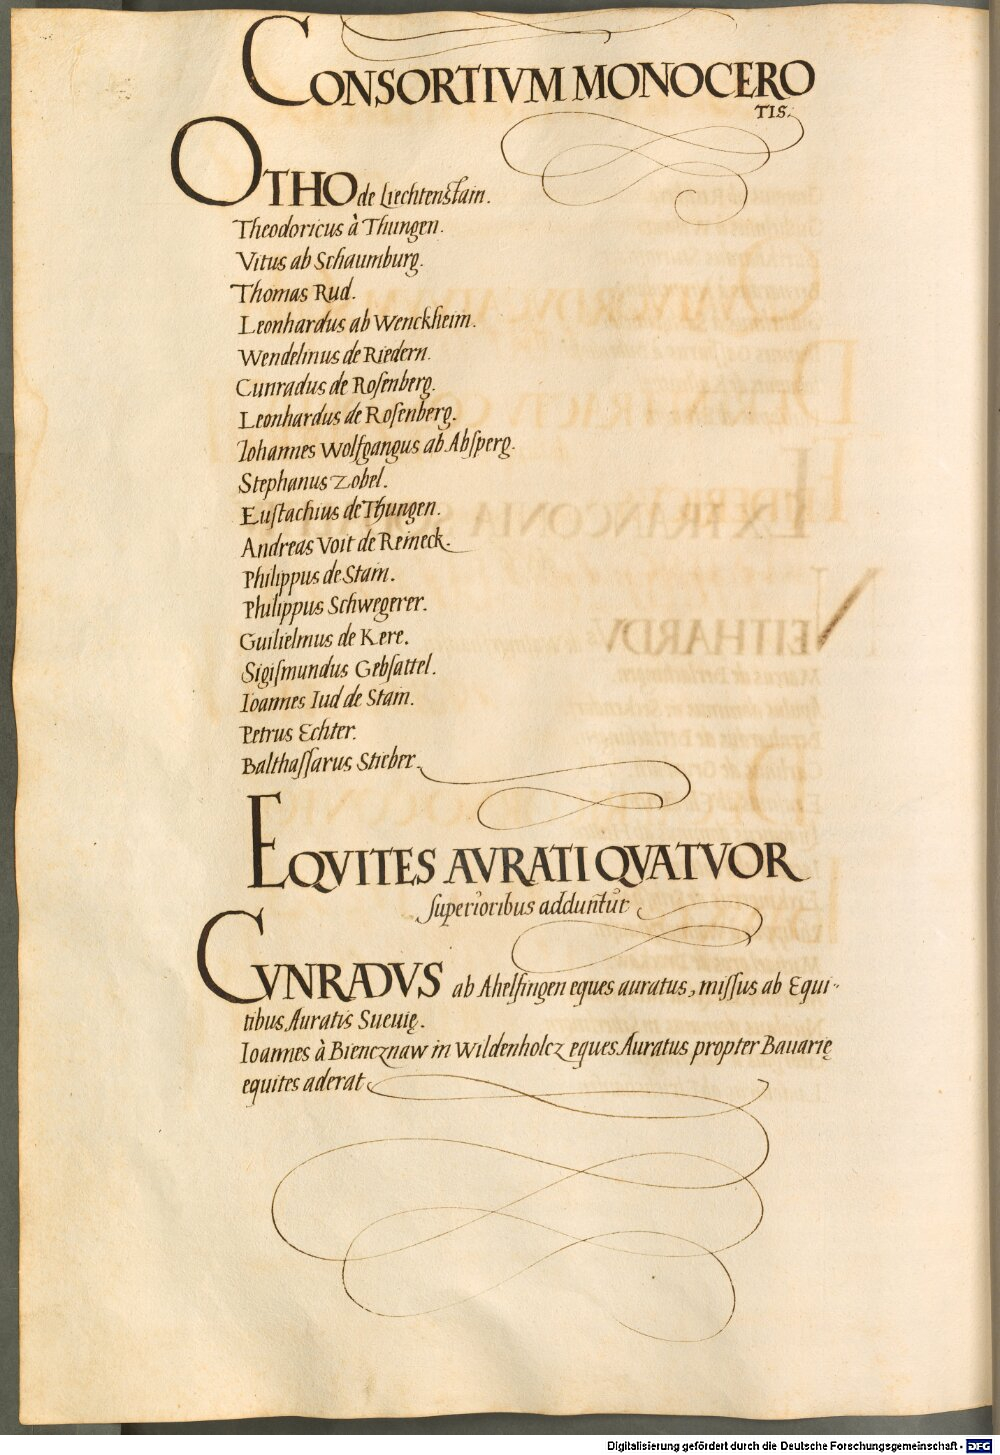 CONSORTIVM MONOCERO
TIS.
OTHO de Liechtenstain.
Theodoricus à Thungen.
Vitus ab Schaumburg.
Thomas Rud.
Leonhardus ab Wenckheim.
Wendelinus de Riedern.
Cunradus de Roſenberg.
Leonhardus de Roſenberg.
Iohannes Wolfgangus ab Abſperg.
Stephanus Zobel.
Euſtachius de Thungen.
Andreas Voit de Reineck.
Philippus de Stain.
Philippus Schwegerer.
Guilielmus de Kere.
Sigiſmundus Gebſattel.
Ioannes Iud de Stain.
Petrus Echter.
Balthaſſarus Stieber.
EQVITES AVRATI QVATVOR
ſuperioribus adduntur
CVNRADVS ab Ahelfingen eques auratus, miſſus ab Equi-
tibus Auratis Sueuię.
Ioannes à Biencznaw in Wildenholcz eques Auratus propter Bauarię
equites aderat
Digitalisierung gefördert durch die Deutsche Forschungsgemeinschaft - DFG